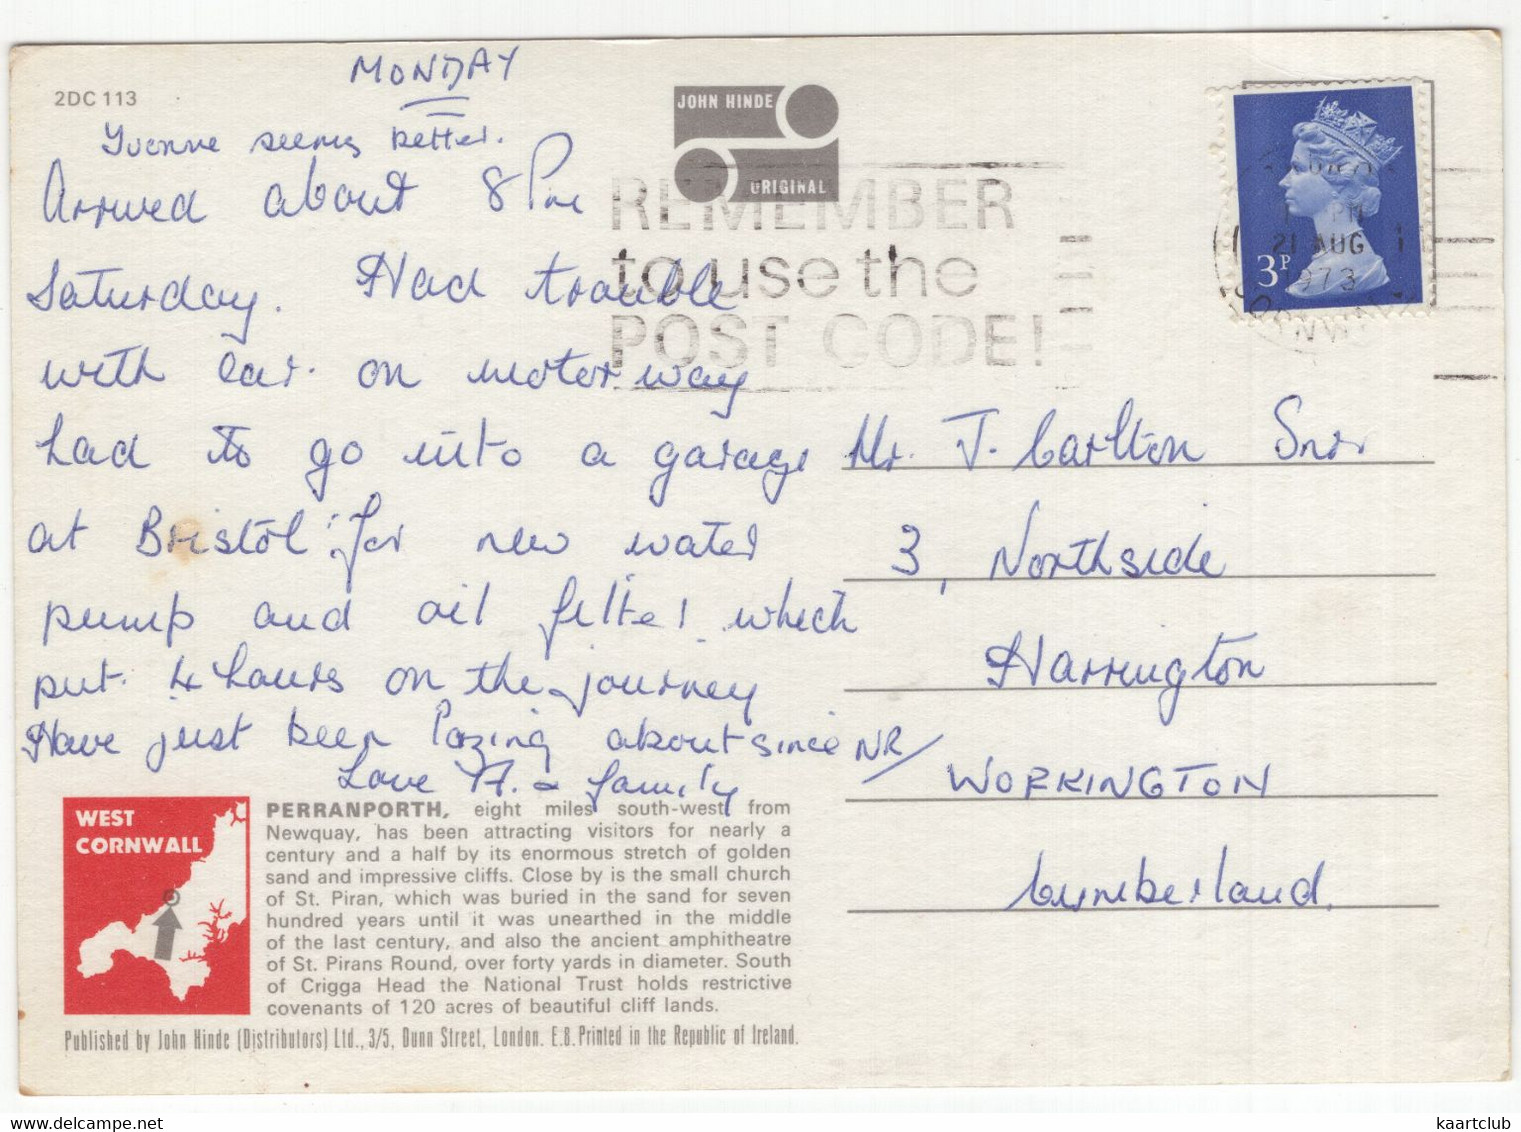 2DC 113
MONDAY
Yvonne seems better.
Arrived about 8 Pm
Saturday. Had trouble
with car. on motorway
had to go into a garage
at Bristol for new water
pump and oil filter which
put 4 hours on the journey
Have just been lazing about since
Love & family
JOHN HINDE
ORIGINAL
REMEMBER
to use the
POST CODE!
PM
21 AUG
1973
CORNWALL
3P
Mr. J. Carlton Snr
3, Northside
Harrington
NR/ WORKINGTON
Cumberland.
WEST
CORNWALL
PERRANPORTH, eight miles south-west from
Newquay, has been attracting visitors for nearly a
century and a half by its enormous stretch of golden
sand and impressive cliffs. Close by is the small church
of St. Piran, which was buried in the sand for seven
hundred years until it was unearthed in the middle
of the last century, and also the ancient amphitheatre
of St. Pirans Round, over forty yards in diameter. South
of Crigga Head the National Trust holds restrictive
covenants of 120 acres of beautiful cliff lands.
Published by John Hinde (Distributors) Ltd., 3/5, Dunn Street, London. E.8. Printed in the Republic of Ireland.
kaartclub